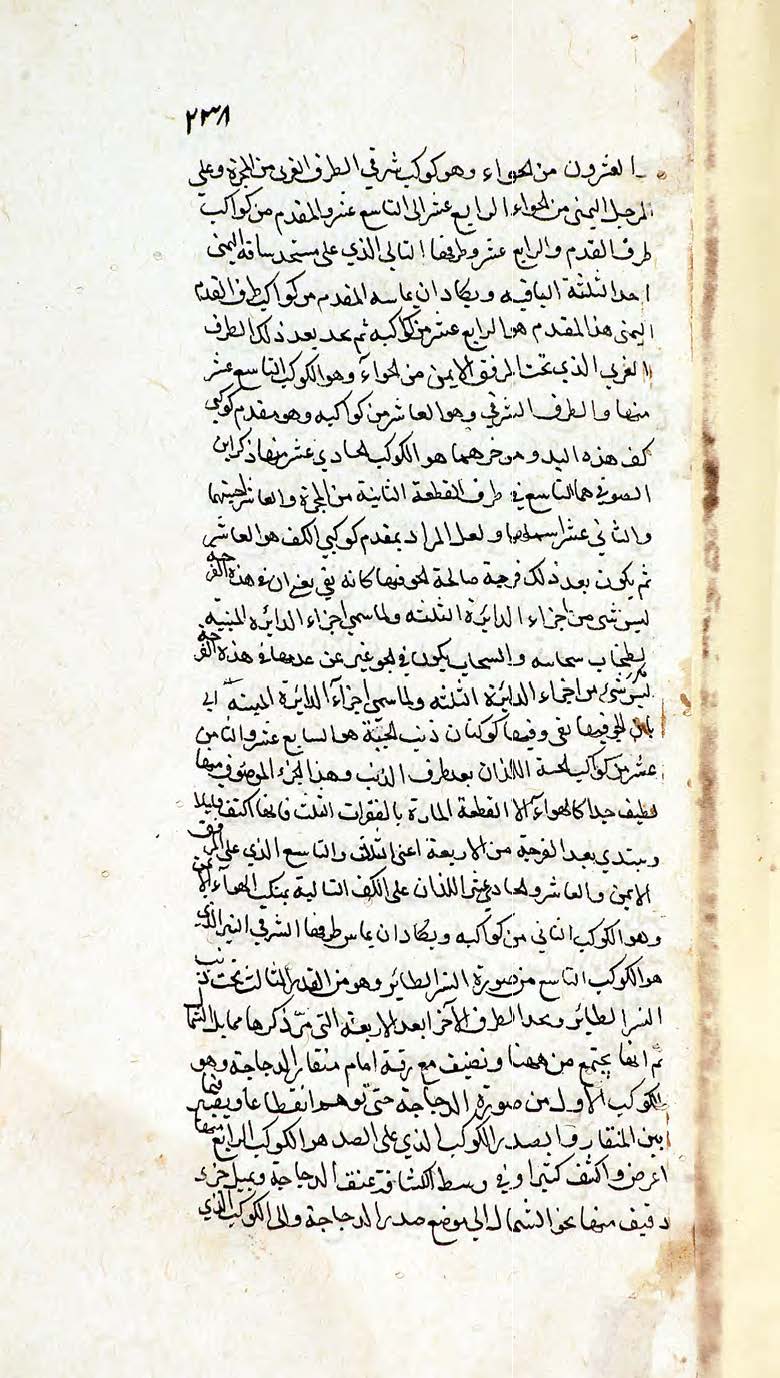 ٢٣٨
العشرون من الحواء وهو كوكب شرقي الطرف الغربي من المجرة وعلى
الرجل اليمنى من الحواء الرابع عشر الى التاسع عشر والمقدم من كواكب
طرف القدم والرابع عشر وطرفها التالي الذي على ساقه اليمنى
احد الثلثة الباقيه ويكاد ان يماسه المقدم من كواكب طرف القدم
اليمنى هذا المقدم هو الرابع عشر من كواكبه ثم يحد بعد ذلك الطرف
الغربي الذي تحت المرفق الايمن من الحواء وهو الكوكب التاسع عشر
منها والطرف الشرقي وهو العاشر من كواكبه وهو مقدم كوكبي
كف هذه اليد ومؤخرهما هو الكوكب الحادي عشر منها ذكر ابن
الصوفي هما التاسع في طرف القطعة الثانية من المجرة والعاشر
والثاني عشر ولعل المراد بمقدم كوكبي الكف هو العاشر
ثم يكون بعد ذلك فرجة صالحة الجو فيها كانه نقي يعني ان في هذه الفرجة
ليس شئ من اجزاء الدايرة اللبنية ولما سمي اجزاء الدايرة اللبنية
سحابيه والسحاب يكون في الجو عبر عن عدمها في هذه الفرجة
ليس شئ من اجزاء الدايرة اللبنية ولما سمي اجزاء الدايرة اللبنية الى
بان الجو فيها نقي وفيها كوكبان ذنب الحية هو السابع عشر والثامن
عشر من كواكب الحية اللذان بعد طرف الذنب وهذا الجزء الموصوف منها
لطيف جدا كالهواء الا القطعة المارة بالفقرات الثلث فانها اكثف قليلا
ويبتدي بعد الفرجة من الاربعة اعني الثلاث والتاسع الذي على المرفق
الايمن والعاشر والحادي عشر اللذان على الكف التالية بمنكب الحواء الايمن
وهو الكوكب الثاني من كواكبه ويكاد ان يماس طرفها الشرقي النير الذي
هو الكوكب التاسع من صورة النسر الطاير وهو من القدر الثالث تحت ذنب
النسر الطاير ويحد الطرف الآخر ابعد الاربعة التي مر ذكرها مما يلي الشمال
ثم انها يجتمع من ههنا ونضيف مع رقة امام منقار الدجاجة وهو
الكوكب الاول من صورة الدجاجة حتى توهم انقطاعا ويصير فيما
بين المنقار والصدر الكوكب الذي على الصدر هو الكوكب الرابع منها
اعرض واكثف كثيرا وفي وسط الكثافة عنق الدجاجة ويميل جزء
دقيق منها نحو الشمال الى موضع صدر الدجاجة والى الكوكب الذي